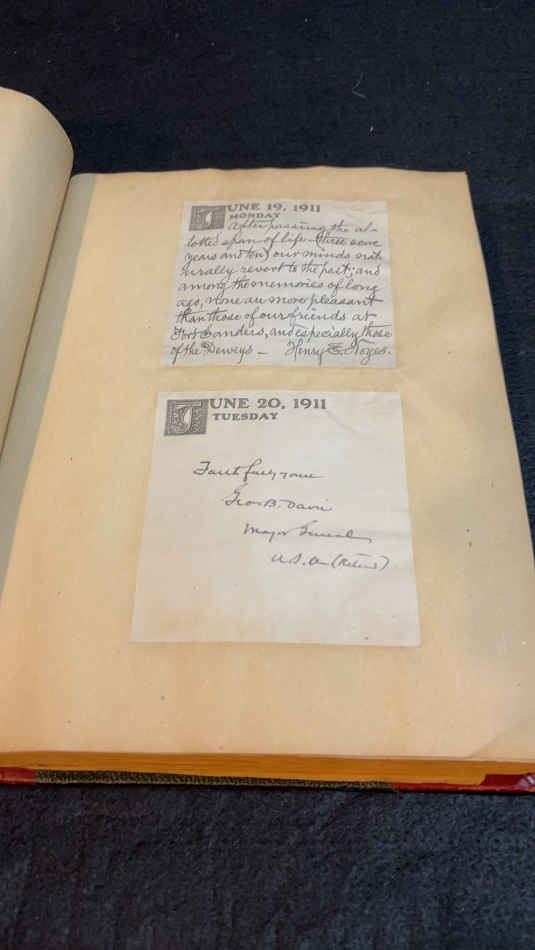 JUNE 19, 1911
MONDAY
After passing the al-
lotted span of life (three score
years and ten) our minds nat-
urally revert to the past; and
among the memories of long
ago, none are more pleasant
than those of our friends at
Fort Sanders, and especially those
of the Deweys — Henry E. Noyes.
JUNE 20, 1911
TUESDAY
Faithfully yours
Geo. B. Davis
Major General
U.S. A. (Retired)